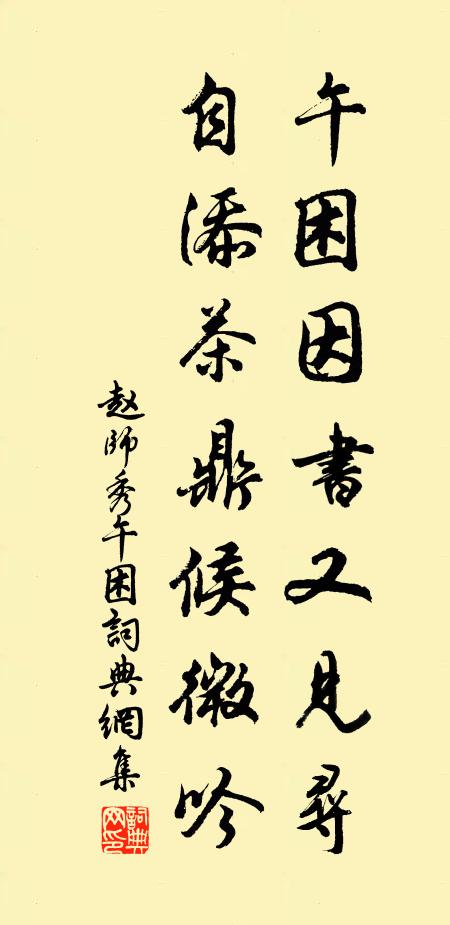 午困因書又見尋
自添茶鼎候微吟
趙師秀午困詞典網集
詞典
网印